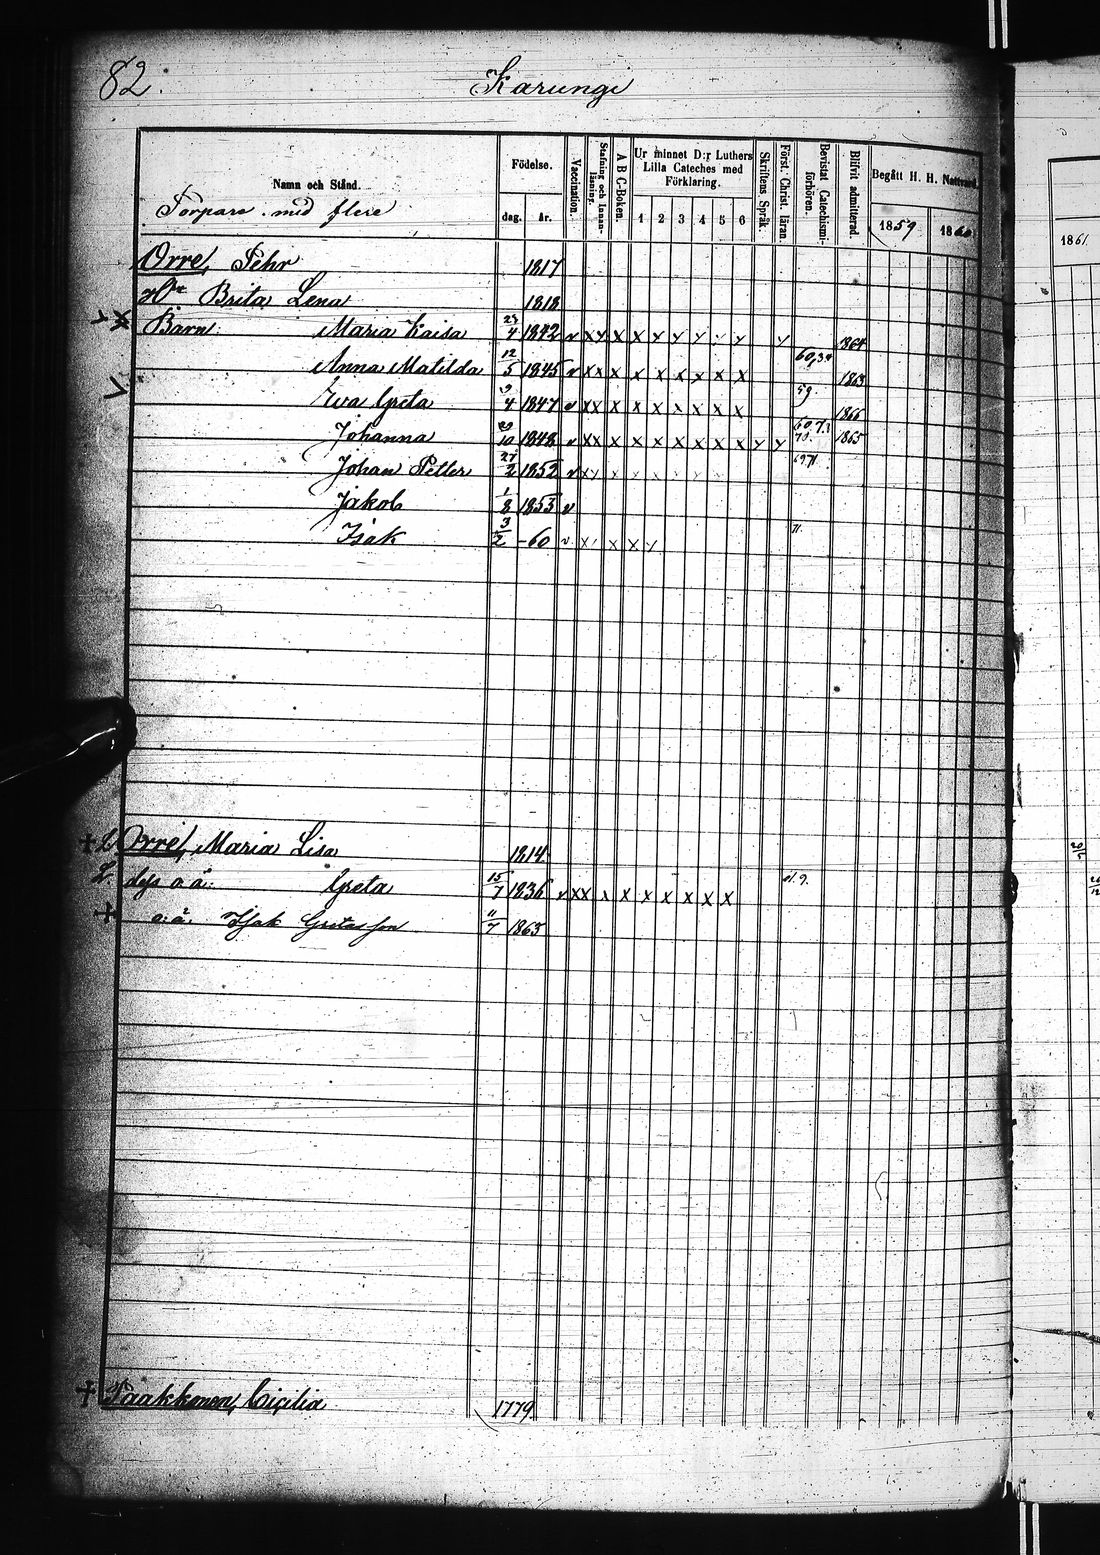 82.
Karungi
Namn och Stånd.
Torpare med flere
Födelse.
dag. år.
Vaccination.
Stafning och Innanläsning.
A B C-Boken.
Ur minnet D:r Luthers Lilla Cateches med Förklaring.
1 2 3 4 5 6
Skriftens Språk.
Först. Christ. läran.
Bevistat Catechismiförhören.
Blifvit admitterad.
Begått H. H. Nattvard.
1859 1860
1861
Orre, Pehr 1817
Brita Lena 1818
Barn Maria Kaisa 23/4 1842 v x x x x x x x x 1864
Anna Matilda 12/5 1845 v x x x x x x x x x 1863
Eva Greta 9/4 1847 v x x x x x x x x x 59. 1866
Johanna 1848 v x x x x x x x x x 1865
Johan Petter 27/2 1852 v x
Jakob 1/8 1853 v
Isak 3/2 -60 v x x x 71.
Orre, Maria Lisa 1814
o ä. Greta 15/7 1836 v x x x x x x x x x
o. ä. Isak Gretasson 11/7 1863
Paakkonen, Cicilia 1779